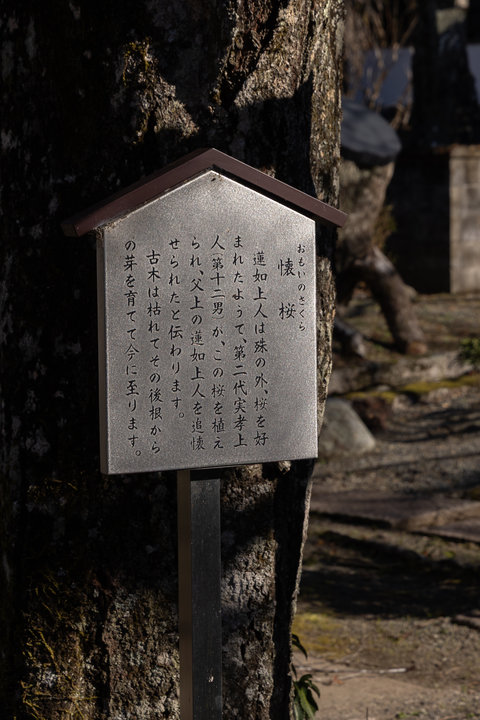 おもいのさくら
懐桜
蓮如上人は殊の外、桜を好
まれたようで、第二代実孝上
人(第十二男)が、この桜を植え
られ、父上の蓮如上人を追懐
せられたと伝わります。
古木は枯れてその後根から
の芽を育てて今に至ります。